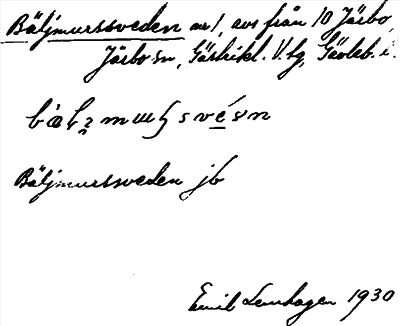 Bäljmurssveden nr 1, avs från 10 Järbo,
Järbo sn, Gästrikl. V. tg, Gävleb. l.
Bäljmurssveden jb
Emil Lenhagen 1930